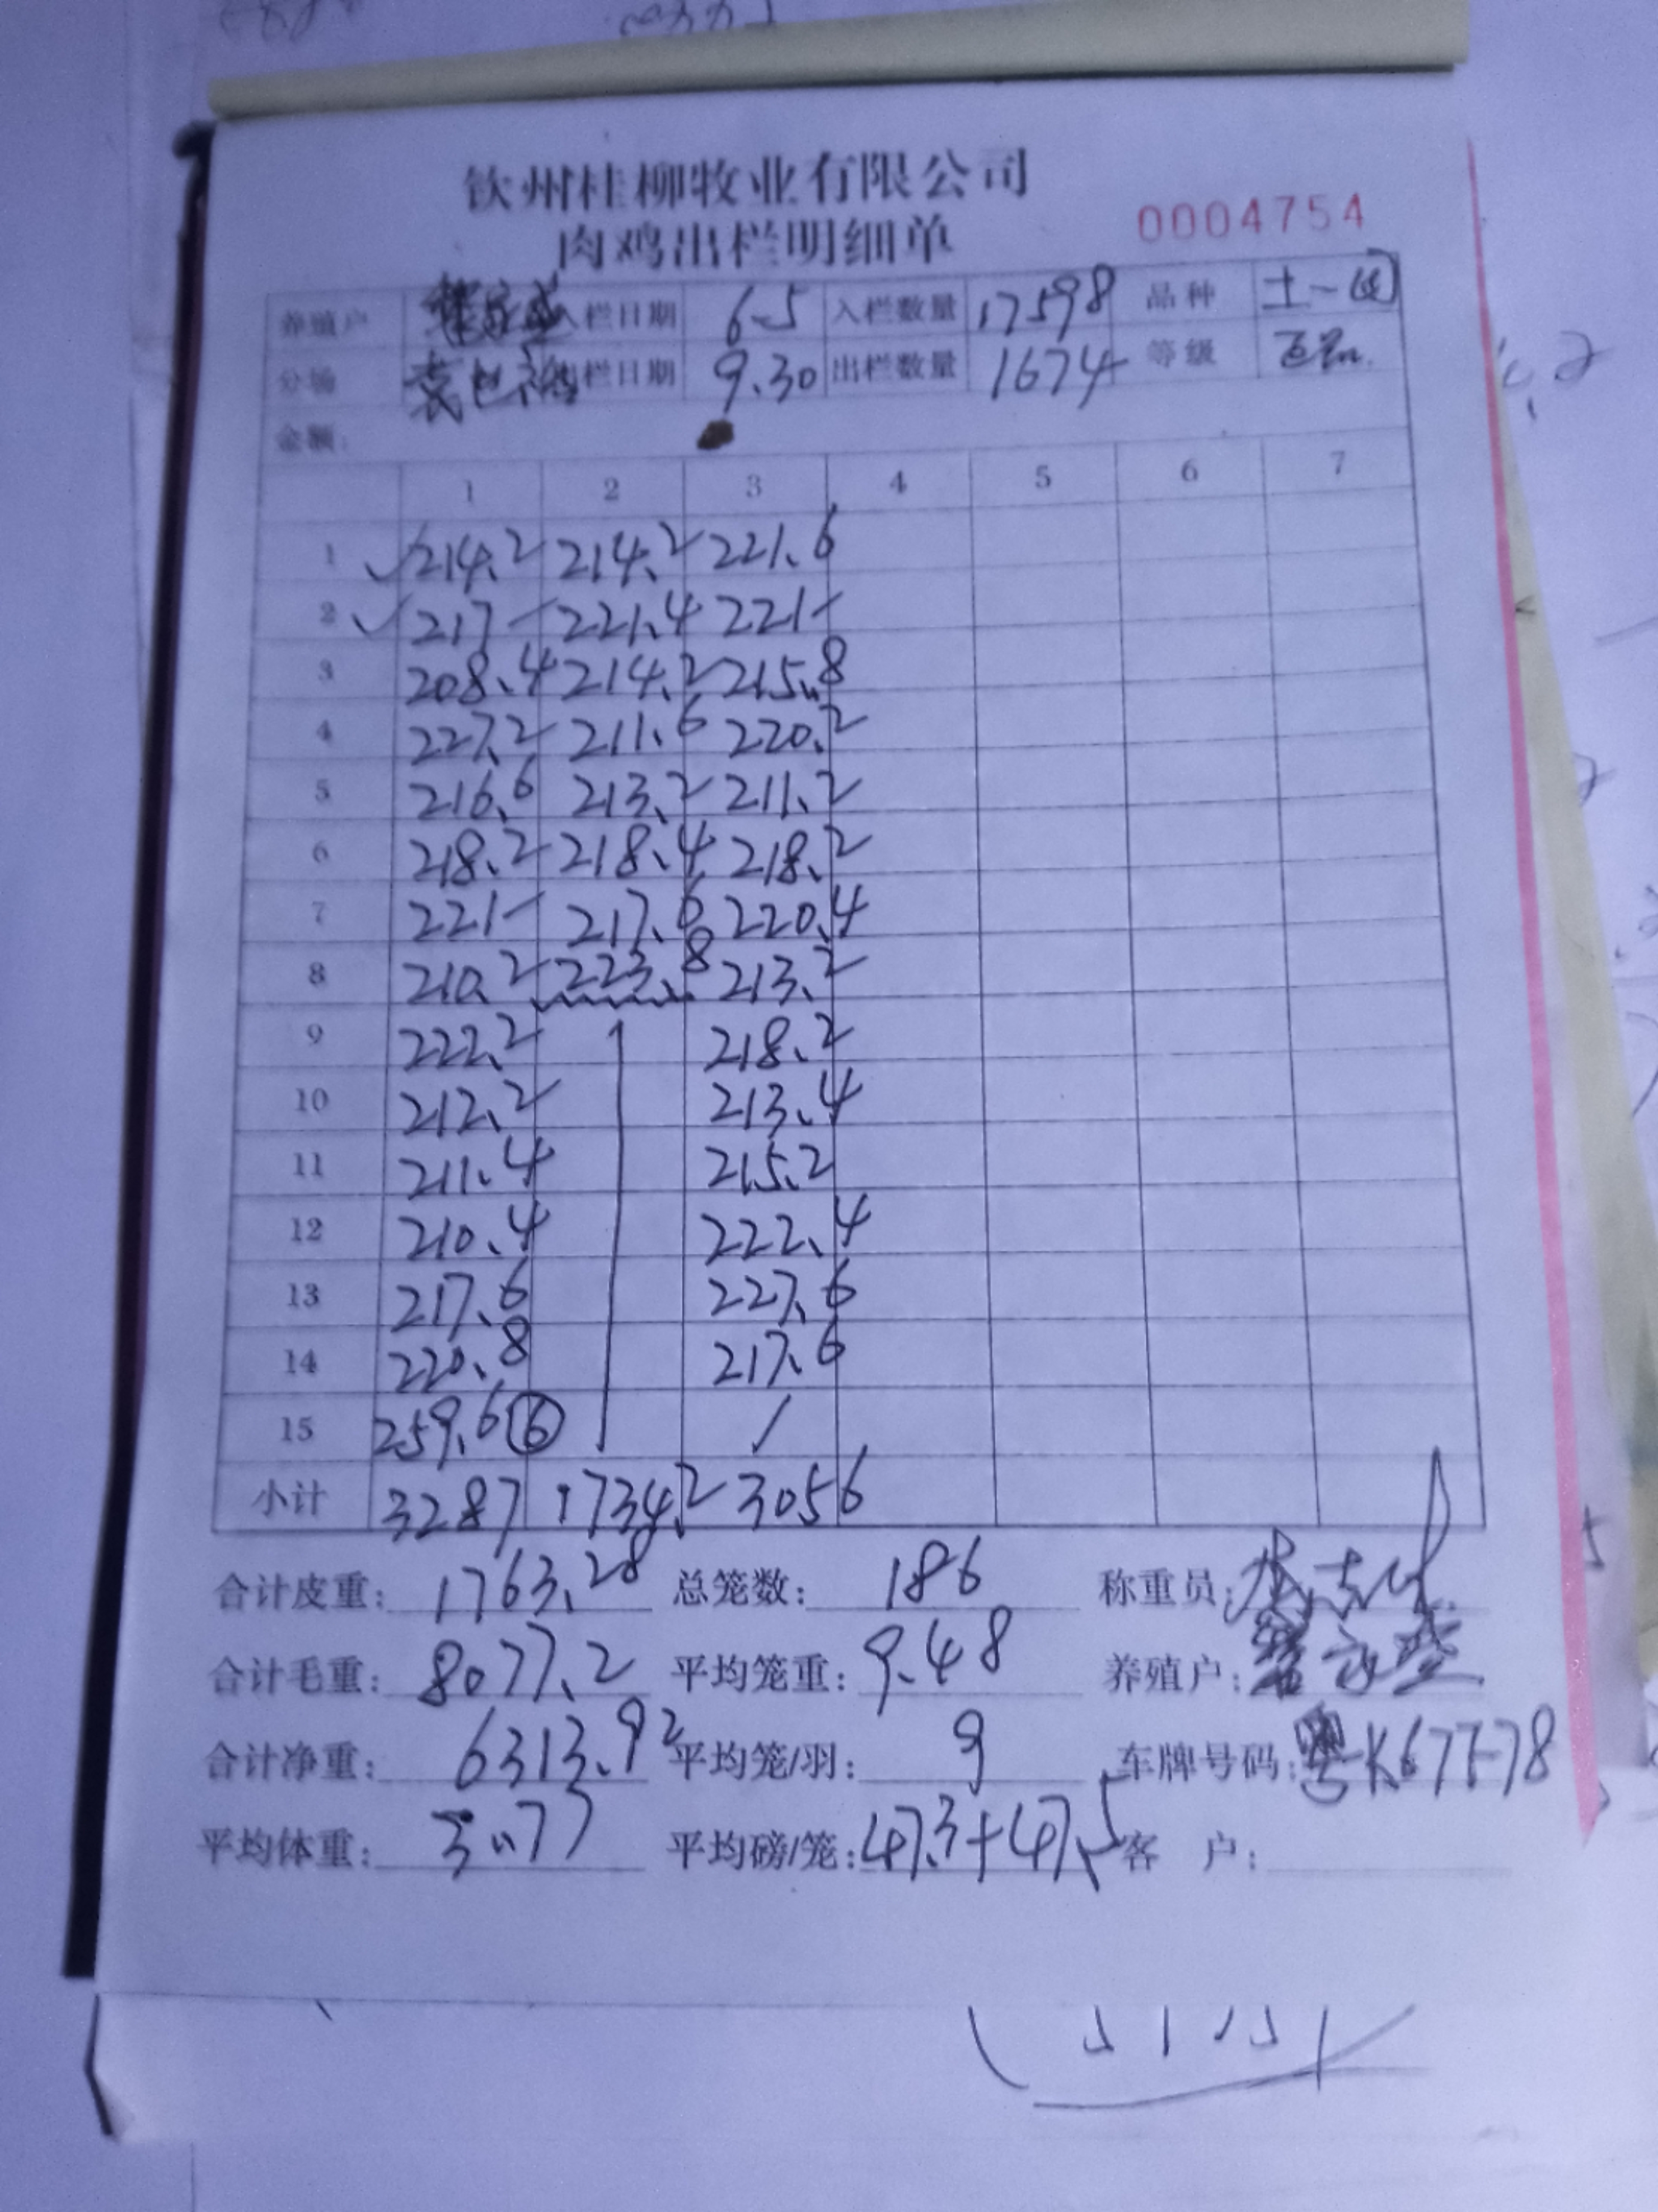 钦州桂柳牧业有限公司
肉鸡出栏明细单 0004754
养殖户 入栏日期 6-5 入栏数量 17598 品种 土一
分场 出栏日期 9.30 出栏数量 1674 等级
金额:
1 2 3 4 5 6 7
1 214.2 214.2 221.6
2 217- 221.4 221-
3 208.4 214.2 215.8
4 227.2 211.6 220.2
5 216.6 213.2 211.2
6 218.2 218.4 218.2
7 221- 217.6 220.4
8 210.2 223.8 213.2
9 222.2 218.2
10 212.2 213.4
11 211.4 215.2
12 210.4 222.4
13 217.6 227.6
14 220.8 217.6
15 259.6 ⑥ /
小计 3287 1734.2 3056
合计皮重: 1763.28 总笼数: 186 称重员:
合计毛重: 8077.2 平均笼重: 9.48 养殖户:
合计净重: 6313.92 平均笼/羽: 9 车牌号码: 粤K67778
平均体重: 3.77 平均磅/笼: 47.3+47.5 客 户: